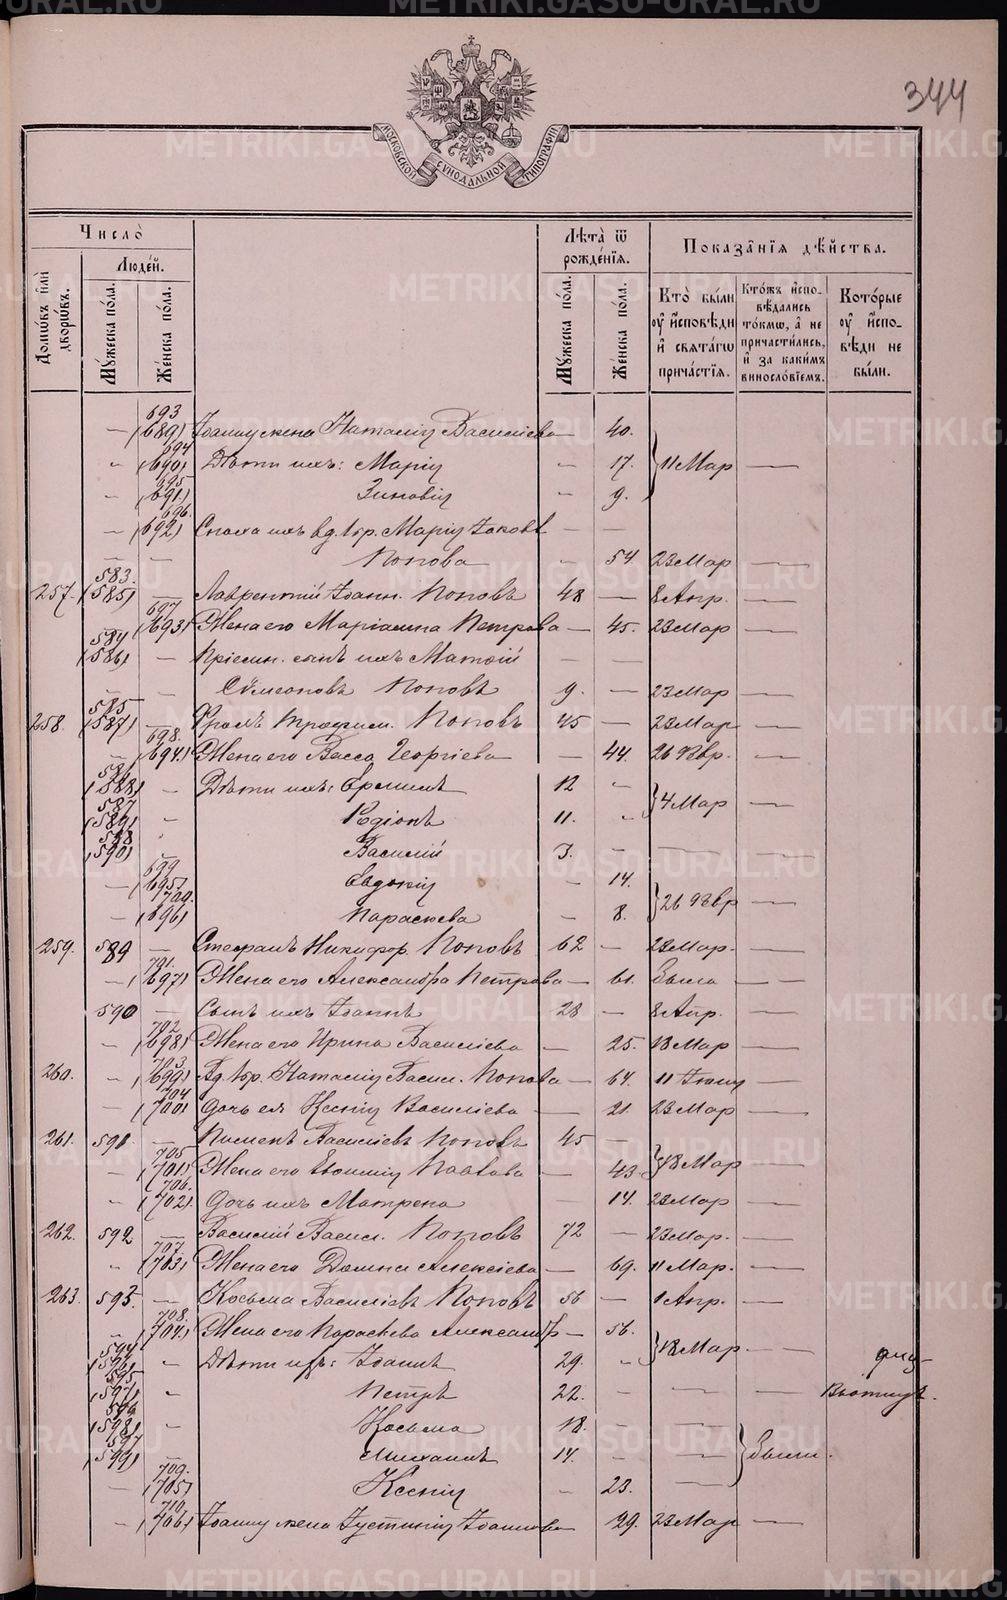 METRIKI.GASO-URAL.RU
344
МОСКОВСКОЙ СѴНОДАЛЬНОЙ ТИПОГРАФІИ
Число̀
Домѡ́въ и҆лѝ дворѡ́въ.
Люде́й.
Мꙋ́жеска по́ла.
Же́нска по́ла.
Лѣ́та ѿ рожде́нїя.
Мꙋ́жеска по́ла.
Же́нска по́ла.
Показа̑нїя дѣ́йства.
Кто̀ бы́ли оу҆ и҆сповѣ́ди и҆ свѧта́гѡ прича́стїѧ.
Кто́жъ и҆спо-вѣ́дались то́кмѡ, а҆ не причасти́лись, и҆ за каки́мъ винословїемъ.
Кото́рые оу҆ и҆спо-вѣ́ди не бы́ли.
— 693 (689) Іоанну жена Наталія Васильева — 40.
" 694 (690) Дѣти ихъ: Марія — 17. } 11 Мар —
— 695 (691) Зиновія — 9.
— 696 (692) Сноха ихъ вд. Марія Іаковл — —
Попова — 54. 23 Мар —
257. 583. (585) — Лаврентій Іоанн. Поповъ 48 — 8 Апр. —
697 (693) Жена его Маріамна Петрова — 45. 23 Мар —
584 (586) — Пріемн. сынъ ихъ Матѳій — —
Сѵмеоновъ Поповъ 9. — 23 Мар —
258. 585 (587) — Поповъ 45 — 23 Мар —
698. (694) Жена его Васса Георгіева — 44. 26 Февр. —
586 (588) — Дѣти ихъ: 12 "
587 (589) " Родіонъ 11. " } 4 Мар —
588 (590) Василій 3. — — —
— 699 (695) Евдокія — 14.
— 700. (696) Параскева — 8. } 26 Февр —
259. 589 — Стефанъ Никифор. Поповъ 62 — 23 Мар. —
— 701. (697) Жена его Александра Петрова — 61. Была —
590 — Сынъ ихъ Іоаннъ 28 — 8 Апр. —
" 702 (698) Жена его Ирина Васильева — 25. 18 Мар —
260. " 703 (699) Наталія Васил. Попова — 64. 11 —
— 704 (700) Дочь ея Ксенія Васильева — 21. 23 Мар —
261. 591. — Пименъ Васильевъ Поповъ 45 —
— 705 (701) Жена его Евѳимія Павлова — 43. } 18 Мар —
" 706. (702) Дочь ихъ Матрена — 14. 23 Мар —
262. 592 — Василій Васил. Поповъ 72 — 23 Мар. —
" 707. (703) Жена его Домна Алексіева — 69. 11 Мар. —
263. 593. — Косьма Васильевъ Поповъ 56 — 1 Апр. —
" 708. (704) Жена его Параскева Александр — 56.
594 (596) " Дѣти ихъ: Іоаннъ 29. " } 18 Мар. —
595 (597) " Петръ 22. — — —
596 (598) " Косьма 18. — —
597 (599) Михаилъ 14. — — } Были.
— 709. (705) Ксенія — 23. —
— 710. (706) Іоанну жена Іустинія Іоаннова 29. 23 Мар —